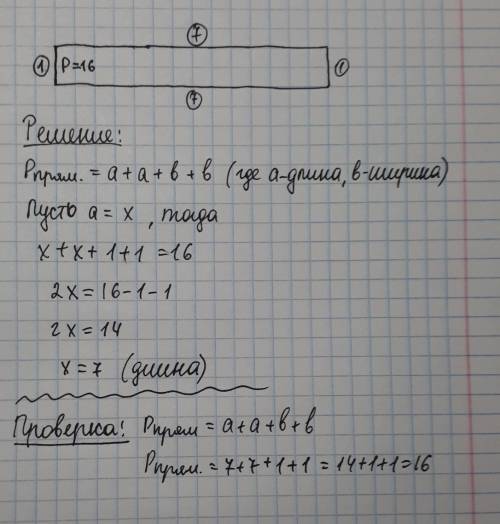 7
1 P=16 1
7
Решение:
Pпрям. = a + a + в + в (где a-длина, в-ширина)
Пусть a = x, тогда
x + x + 1 + 1 = 16
2x = 16 - 1 - 1
2x = 14
x = 7 (длина)
Проверка! Pпрям = a + a + в + в
Pпрям. = 7 + 7 + 1 + 1 = 14 + 1 + 1 = 16